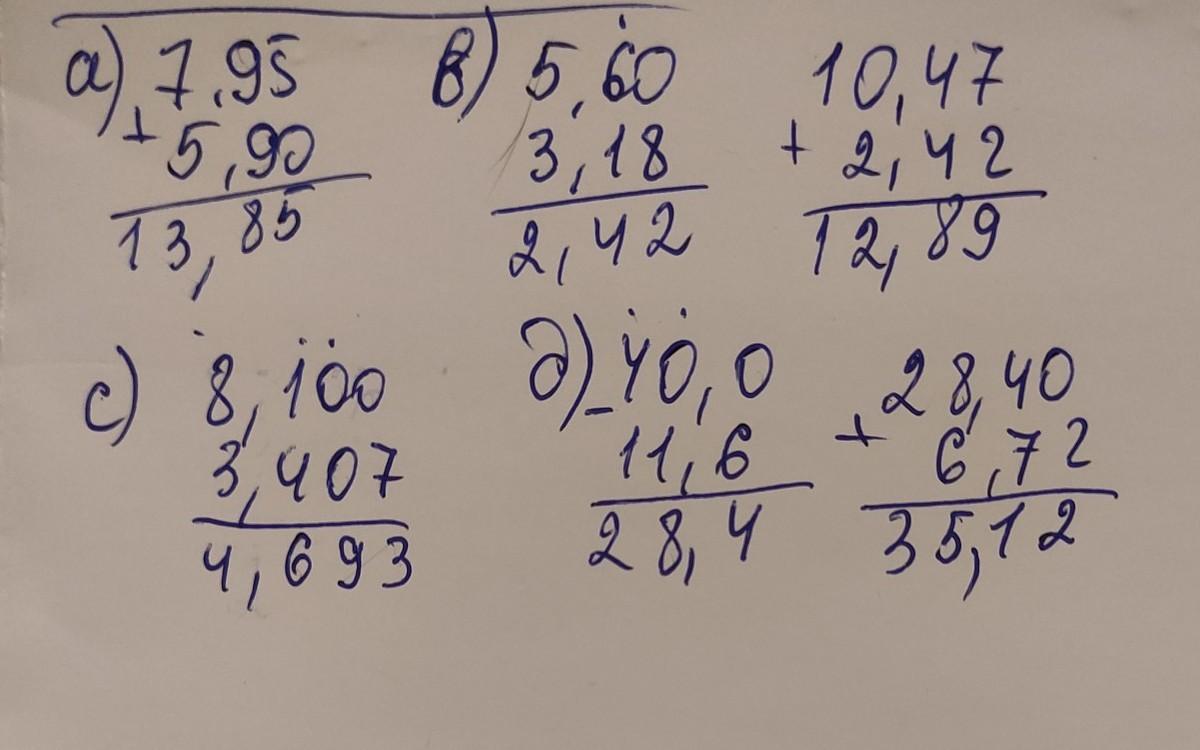 а) 7,95
+ 5,90
13,85
в) 5,60
3,18
2,42
10,47
+ 2,42
12,89
с) 8,100
3,407
4,693
д) - 40,0
11,6
28,4
28,40
+ 6,72
35,12